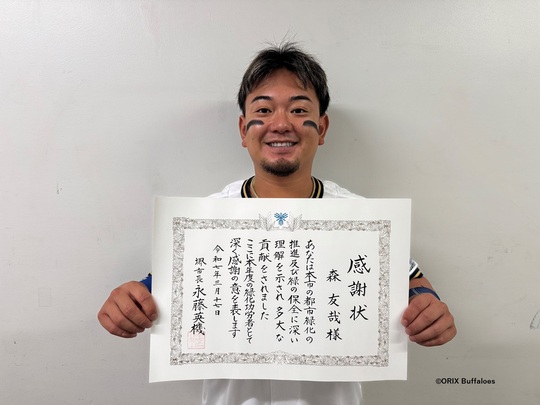 感謝状
森友哉様
あなたは本市の都市緑化の
推進及び緑の保全に深い
理解を示され多大な
貢献をされました
ここに本年度の緑化功労者として
深く感謝の意を表します
令和七年三月十七日
堺市長 永藤英機
©ORIX Buffaloes